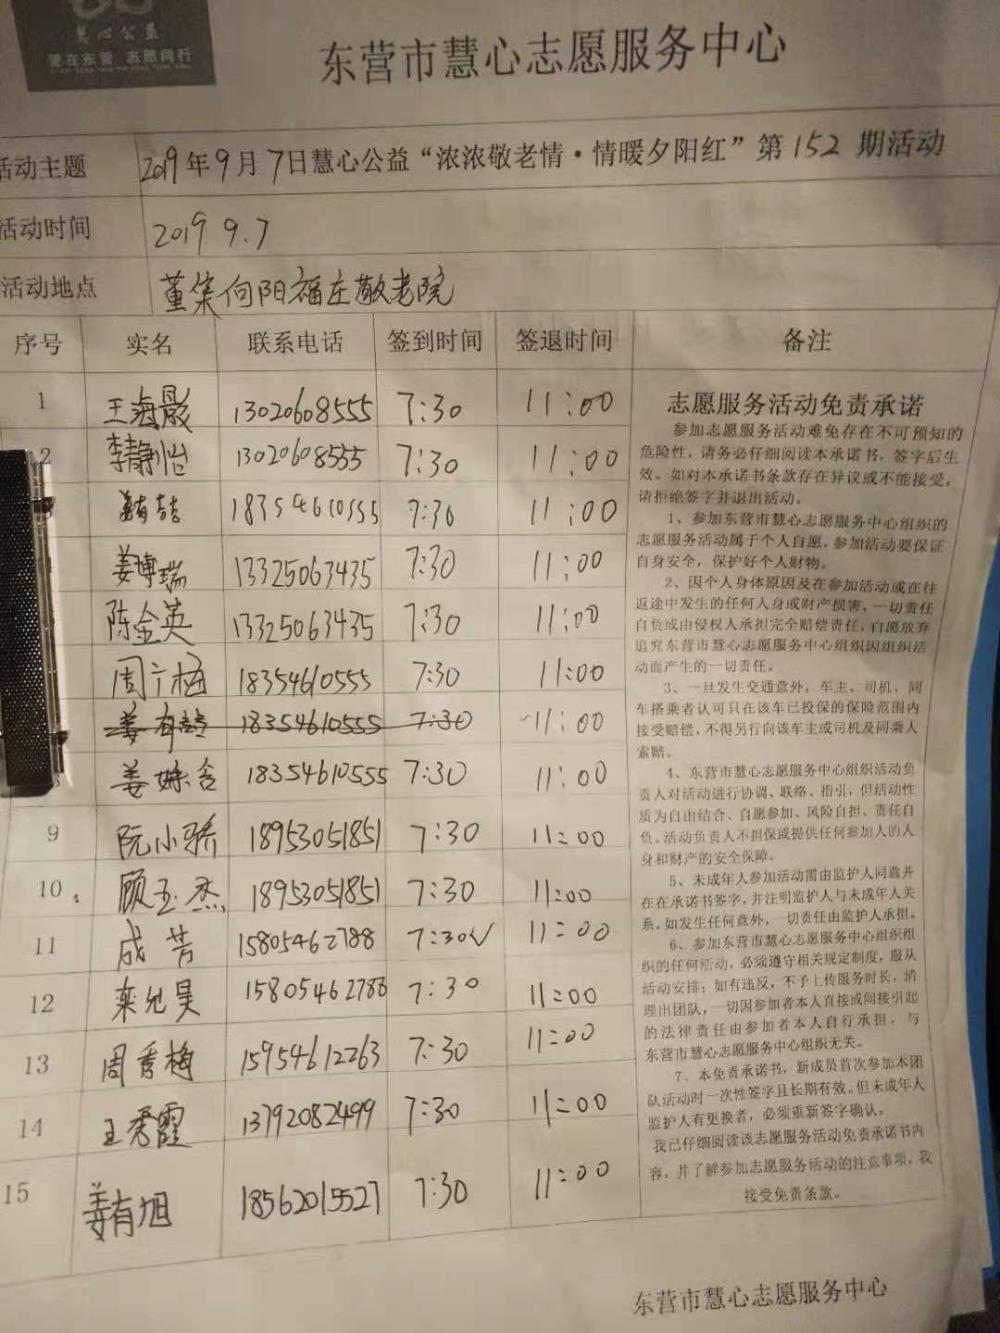 慧心公益
爱在东营 志愿同行
东营市慧心志愿服务中心
活动主题 2019年9月7日慧心公益“浓浓敬老情·情暖夕阳红”第152期活动
活动时间 2019.9.7
活动地点 董集向阳福庄敬老院
序号 实名 联系电话 签到时间 签退时间 备注
1 王海 13020608555 7:30 11:00
2 李静怡 13020608555 7:30 11:00
姜有喆 18354610555 7:30 11:00
姜博瑞 13325063435 7:30 11:00
陈金英 13325063435 7:30 11:00
周广梅 18354610555 7:30 11:00
姜有喆 18354610555 7:30 11:00
姜姝含 18354610555 7:30 11:00
9 阮小骄 18953051851 7:30 11:00
10 顾玉杰 18953051851 7:30 11:00
11 成芳 15805462788 7:30√ 11:00
12 栾允昊 15805462788 7:30 11:00
13 周秀梅 15954612263 7:30 11:00
14 王秀霞 13792082499 7:30 11:00
15 姜有旭 18562015527 7:30 11:00
志愿服务活动免责承诺
参加志愿服务活动难免存在不可预知的
危险性，请务必仔细阅读本承诺书，签字后生
效。如对本承诺书条款存在异议或不能接受，
请拒绝签字并退出活动。
1、参加东营市慧心志愿服务中心组织的
志愿服务活动属于个人自愿，参加活动要保证
自身安全，保护好个人财物。
2、因个人身体原因及在参加活动或在往
返途中发生的任何人身或财产损害，一切责任
自负或由侵权人承担完全赔偿责任，自愿放弃
追究东营市慧心志愿服务中心组织因组织活
动而产生的一切责任。
3、一旦发生交通意外，车主、司机、同
车搭乘者认可只在该车已投保的保险范围内
接受赔偿，不得另行向该车主或司机及同乘人
索赔。
4、东营市慧心志愿服务中心组织活动负
责人对活动进行协调、联络、指引，但活动性
质为自由结合、自愿参加、风险自担、责任自
负。活动负责人不担保或提供任何参加人的人
身和财产的安全保障。
5、未成年人参加活动需由监护人同意并
在在承诺书签字，并注明监护人与未成年人关
系，如发生任何意外，一切责任由监护人承担。
6、参加东营市慧心志愿服务中心组织组
织的任何活动，必须遵守相关规定制度，服从
活动安排；如有违反，不予上传服务时长，清
理出团队，一切因参加者本人直接或间接引起
的法律责任由参加者本人自行承担，与
东营市慧心志愿服务中心组织无关。
7、本免责承诺书，新成员首次参加本团
队活动时一次性签字且长期有效。但未成年人
监护人有更换者，必须重新签字确认。
我已仔细阅读该志愿服务活动免责承诺书内
容，并了解参加志愿服务活动的注意事项，我
接受免责条款。
东营市慧心志愿服务中心